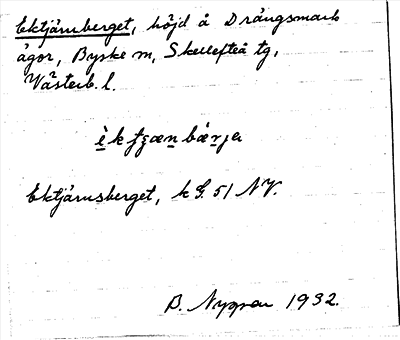 Ektjärnberget, höjd å Drängsmark
ägor, Byske sn, Skellefteå tg,
Västerb. l.
Ektjärnsberget, k G. 51 NV.
B. Nygren 1932.